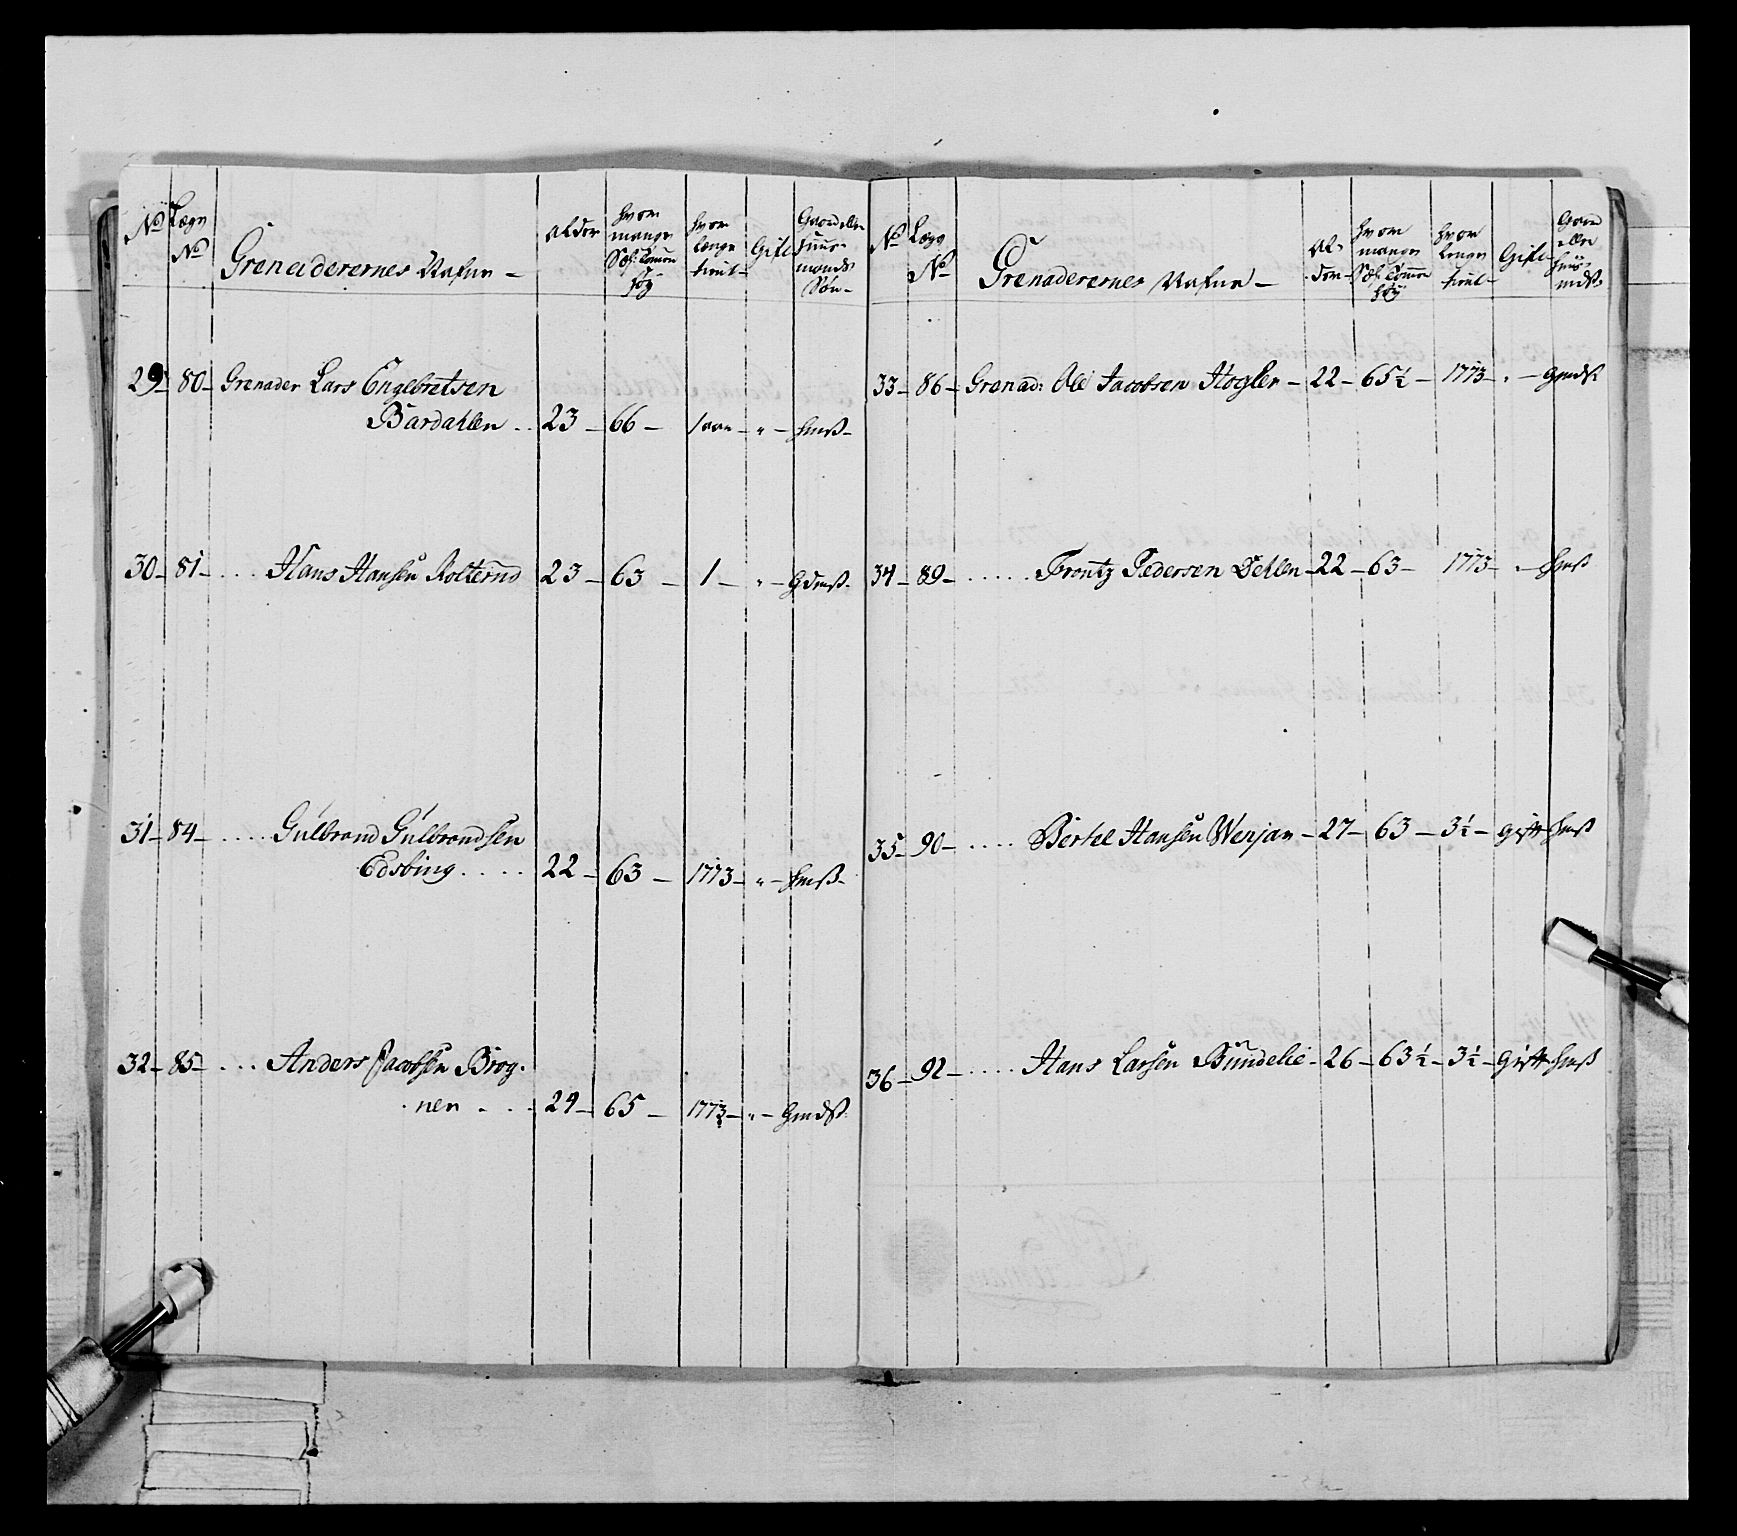 No Lægs No Grenaderernes Nafne – Alder hvor mange Sÿl: Tomer høy hvor længe tient – Gift Gaard eller huus- mands Søn –
29 – 80 – Grenader Lars Engebretsen
Bardahlen . . 23 – 66 – 1 aar – " – Hmß –
30 – 81 – . . . . Hans Hansen Rolterud 23 – 63 – 1 – " – Gdmß –
31 – 84 – . . . . . Gulbrand Gulbrandsen
Edsbing . . . . . 22 – 63 – 1773 – " – Hmß –
32 – 85 – . . . Anders Jacobsen Brog-
nen . . . 24 – 65 – 1773 – " – Gmdß
No Lægs No Grenaderernes Nafne – Al- der – hvor mange Tomer høy hvor længe tient – Gift – Gaard eller huus- mdß.
33 – 86 – Grenad: Ole Jacobsen Hogler – 22 – 65½ – 1773 – " – Gmdß
34 – 89 – . . . . . . Frontz Pedersen Dehlen – 22 – 63 – 1773 – " – Hmß
35 – 90 – . . . . Bertel Hansen Wenjan – 27 – 63 – 3½ – Gift Hmß
36 – 92 – . . . . . Hans Larsen Bundelie – 26 – 63½ – 3½ – Gift Hmß